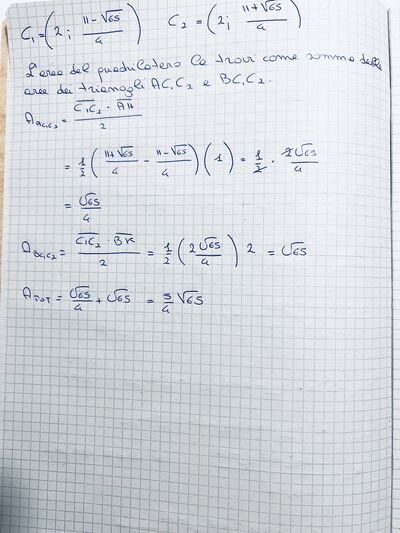 C₁ = (2; (11 - √65)/4)   C₂ = (2; (11 + √65)/4)
L'area del quadrilatero la trovi come somma delle
aree dei triangoli AC₁C₂ e BC₁C₂.
A_AC₁C₂ = (C₁C₂ · AH)/2
= 1/2 ((11+√65)/4 - (11-√65)/4) (1) = 1/2 · 2√65/4
= √65/4
A_BC₁C₂ = (C₁C₂ · BK)/2 = 1/2 (2√65/4) 2 = √65
A_TOT = √65/4 + √65 = 5/4 √65